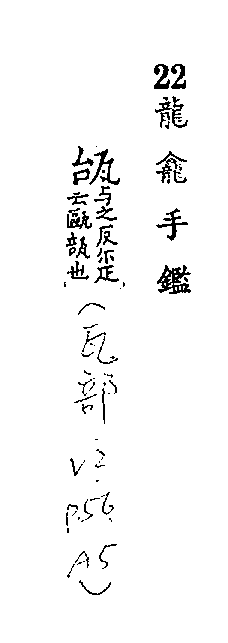 22龍龕手鑑
瓵与之反尒疋
云甌瓿也
(瓦部
V2
P.56
A5)